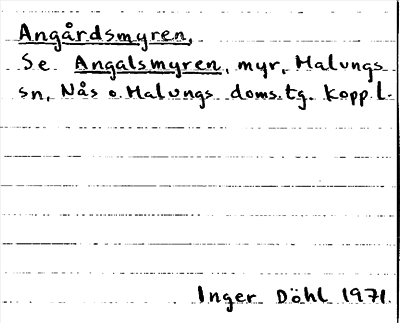 Angårdsmyren,
Se Angalsmyren, myr, Malungs
sn, Nås o. Malungs doms.tg. Kopp.l.
Inger Döhl 1971.